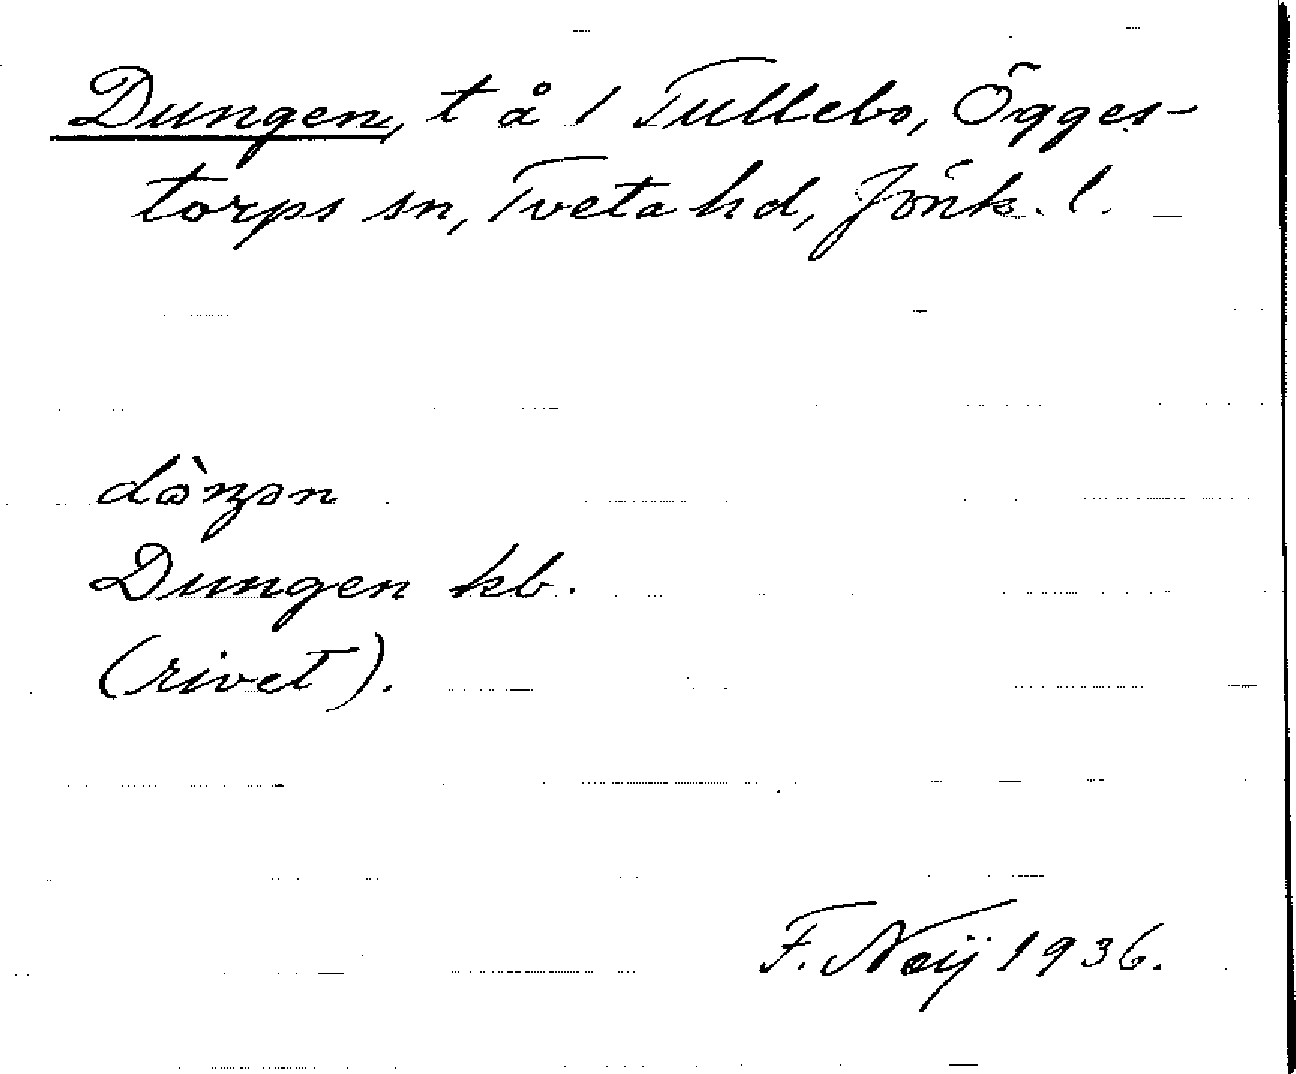 Dungen, t å 1 Tullebo, Ögges-
torps sn, Tveta hd, Jönk. l.
Dungen kb.
(rivet).
F. Noij 1936.